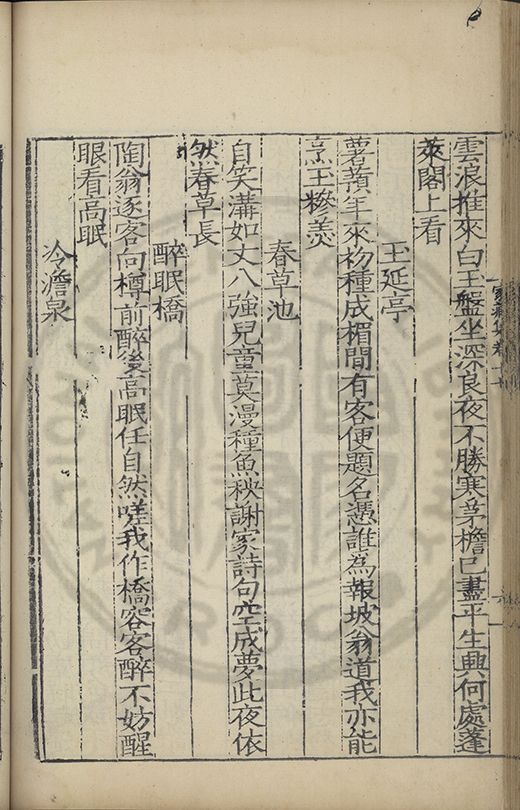 雲浪推來白玉盤坐深良夜不勝寒茅檐已盡平生興何處蓬
萊閣上看
玉延亭
薯蕷年來初種成楣間有客便題名憑誰為報坡翁道我亦能
烹玉糝羹
春草池
自笑溝如丈八強兒童莫漫種魚秧謝家詩句空成夢此夜依
然春草長
醉眠橋
陶翁逐客向樽前醉後高眠任自然嗟我作橋容客醉不妨醒
眼看高眠
冷澹泉